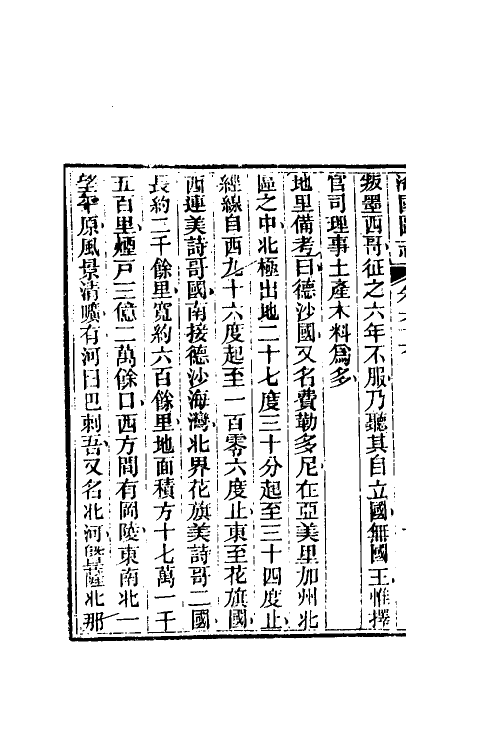 海國圖志
叛墨西哥征之六年不服乃聽其自立國無國王惟擇
官司理事土產木料爲多
地里備考曰德沙國又名費勒多尼在亞美里加州北
區之中北極出地二十七度三十分起至三十四度止
經線自西九十六度起至一百零六度止東至花旗國
西連美詩哥國南接德沙海灣北界花旗美詩哥二國
長約二千餘里寬約六百餘里地面積方十七萬一千
五百里煙戸三億二萬餘口西方間有岡陵東南北一
望平原風景清曠有河曰巴剌吾又名北河薩北那